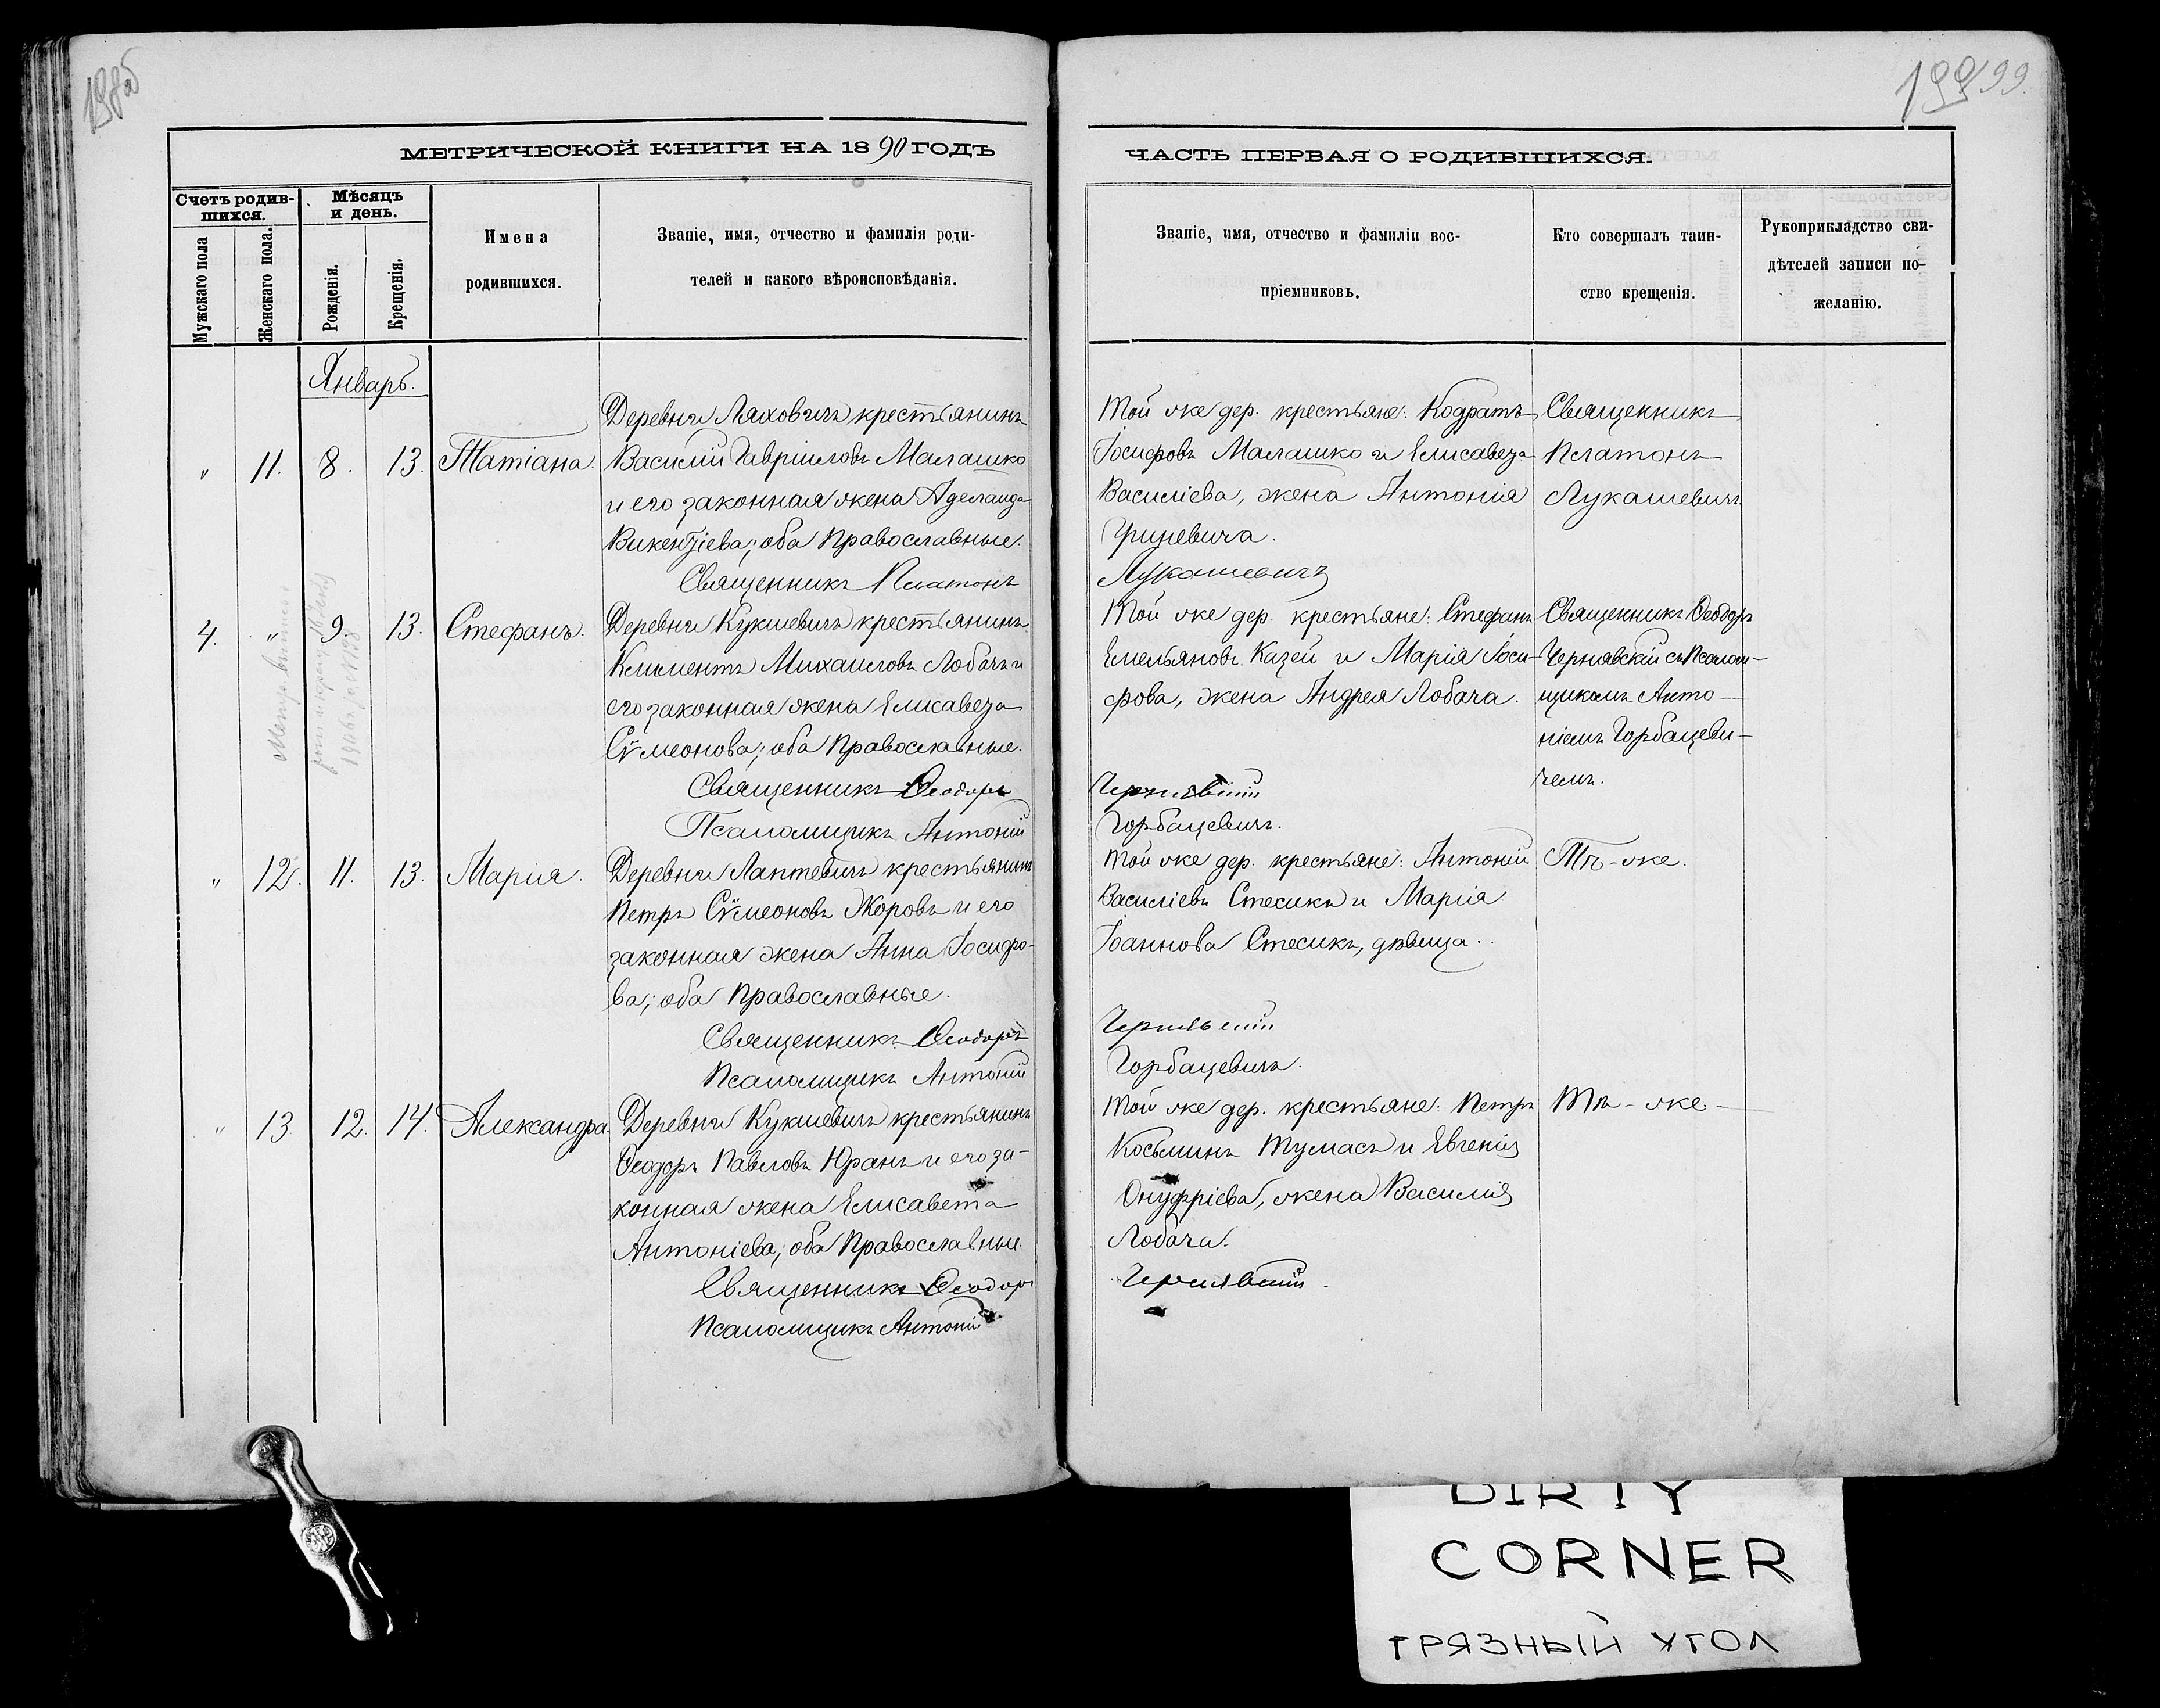 199 99
МЕТРИЧЕСКОЙ КНИГИ НА 1890 ГОДЪ
ЧАСТЬ ПЕРВАЯ О РОДИВШИХСЯ.
Счетъ родив-
шихся.
Мужскаго пола
Женскаго пола.
Мѣсяцъ
и день.
Рожденія.
Крещенія.
Имена
родившихся.
Званіе, имя, отчество и фамилія роди-
телей и какого вѣроисповѣданія.
Званіе, имя, отчество и фамиліи вос-
пріемниковъ.
Кто совершалъ таин-
ство крещенія.
Рукоприкладство сви-
дѣтелей записи по-
желанію.
Январь.
" 11. 8. 13. Татіана.
Деревни Ляховичъ крестьянинъ
Василій Гавріиловъ Малашко
и его законная жена Аделаида
Викентіева; оба Православные.
Священникъ Платонъ
Той же дер. крестьяне: Кодратъ
Іосифовъ Малашко и Елисавета
Василіева, жена Антонія
Гриневича.
Лукашевичъ
Священникъ
Платонъ
Лукашевичъ
4. " 9. 13. Стефанъ.
Деревни Кукшевичъ крестьянинъ
Климентъ Михаиловъ Лобачъ и
его законная жена Елисавета
Сѵмеонова; оба Православные.
Священникъ Ѳеодоръ
Псаломщикъ Антоній
Той же дер. крестьяне: Стефанъ
Емельяновъ Казей и Марія Іоси-
фова, жена Андрея Лобача.
Чернявскій
Горбацевичъ.
Священникъ Ѳеодоръ
Чернявскій съ Псалом-
щикомъ Анто-
ніемъ Горбацеви-
чемъ.
" 12. 11. 13. Марія.
Деревни Лаптевичъ крестьянинъ
Петръ Сѵмеоновъ Жоровъ и его
законная жена Анна Іосифо-
ва; оба Православные.
Священникъ Ѳеодоръ
Псаломщикъ Антоній
Той же дер. крестьяне: Антоній
Василіевъ Стесикъ и Марія
Іоаннова Стесикъ, дѣвица.
Чернявскій
Горбацевичъ.
Тѣ-же.
" 13 12. 14. Александра.
Деревни Кукшевичъ крестьянинъ
Ѳеодоръ Павловъ Юранъ и его за-
конная жена Елисавета
Антоніева; оба Православные.
Священникъ Ѳеодоръ
Псаломщикъ Антоній
Той же дер. крестьяне: Петръ
Косьминъ Тумасъ и Евгенія
Онуфріева, жена Василія
Лобача.
Чернявскій.
Тѣ-же.
DIRTY
CORNER
ГРЯЗНЫЙ УГОЛ